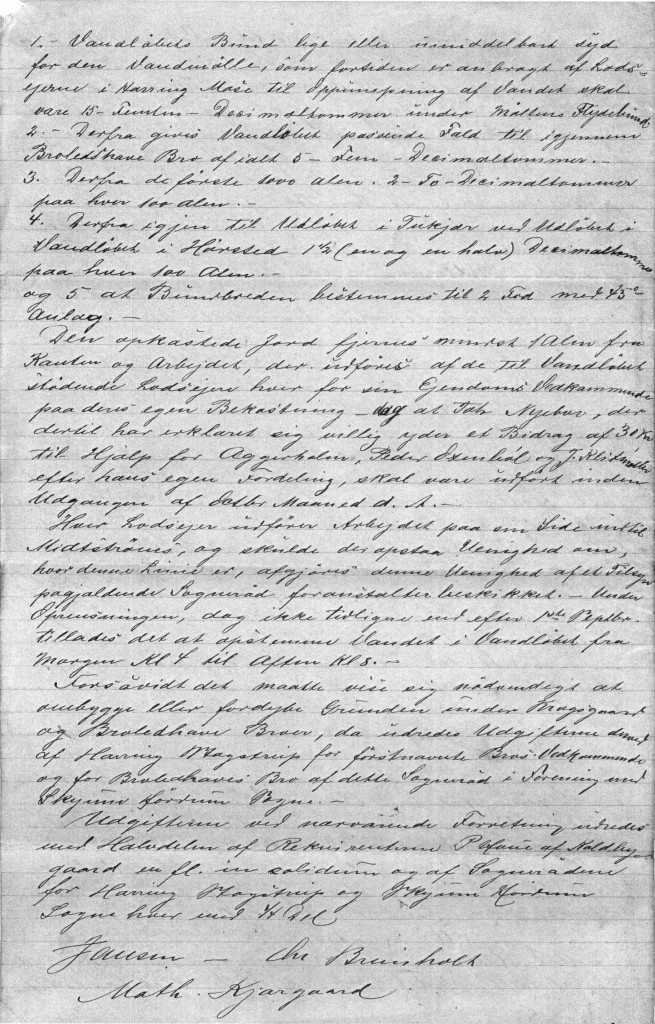 1.- Vandløbets Bund lige eller umiddelbart syd
for den Vandmölle, som fortiden er anbragt af Lods-
ejerne i Harring Mose til Oppumpning af Vandet skal
være 15- Femten - Decimaltommer under Möllens
2.- Derfra gives Vandløbet passende Fald til igjennem
Broledshave Bro af ialt 5- Fem - Decimaltommer.-
3. Derfra de förste 1000 alen. 2- To- Decimaltommer
paa hver 100 alen.-
4. Derfra igjen til Udløbet i Tukjær ved Udløbet i
Vandløbet i Hørsted 1½ (en og en halv) Decimaltomme
paa hver 100 Alen.-
og 5 at Bundbreden bestemmes til 2 Fod med 45°
Anlæg.-
Den opkastede Jord fjernes mindst 1 Alen fra
Kanten og Arbejdet, der udføres af de til Vandløbet
stødende Lodsejere hver for sin Ejendoms Vedkommende
paa deres egen Bekostning - dog at Joh Nyebor, der
dertil har erklæret sig villig yder et Bidrag af 30 Kr
til Hjælp for Aggerholm, Peder Oxenbøl og J. Klitmøller
efter hans egen Fordeling, skal være udført inden
Udgangen af Octbr Maaned d. A.-
Hver Lodsejer udfører Arbejdet paa sin Side indtil
Midtströms, og skulde der opstaa Uenighed om,
hvor denne Linie er, afgjøres denne Uenighed af et Tilsyn
pågjældende Sogneråd foranstalter beskikket.- Under
Oprensningen, dog ikke tidligere end efter 1ste Septbr.
tillades det at opstemme Vandet i Vandløbet fra
Morgen Kl 4 til Aften Kl 8.-
Forsåvidt det maatte vise sig nödvendigt at
ombygge eller fordybe Grunden under
og Broledhave Broer, da udredes Udgifterne derved
af Harring Stagstrup for förstnævnte Bros Vedkommende
og for Broledhaves Bro af dette Sogneråd i Forening med
Skjum Hördum Sogne.-
Udgifterne ved nærværende Forretning udredes
med Halvdelen af Rekvirenterne P af Nordby
gaard en fl. in solidum og af Sognerådene
for Harring Stagstrup og Skjum Hördum
Sogne hver med ¼ Del
Jansen - Chr Brunholt
Math. Kjærgaard.